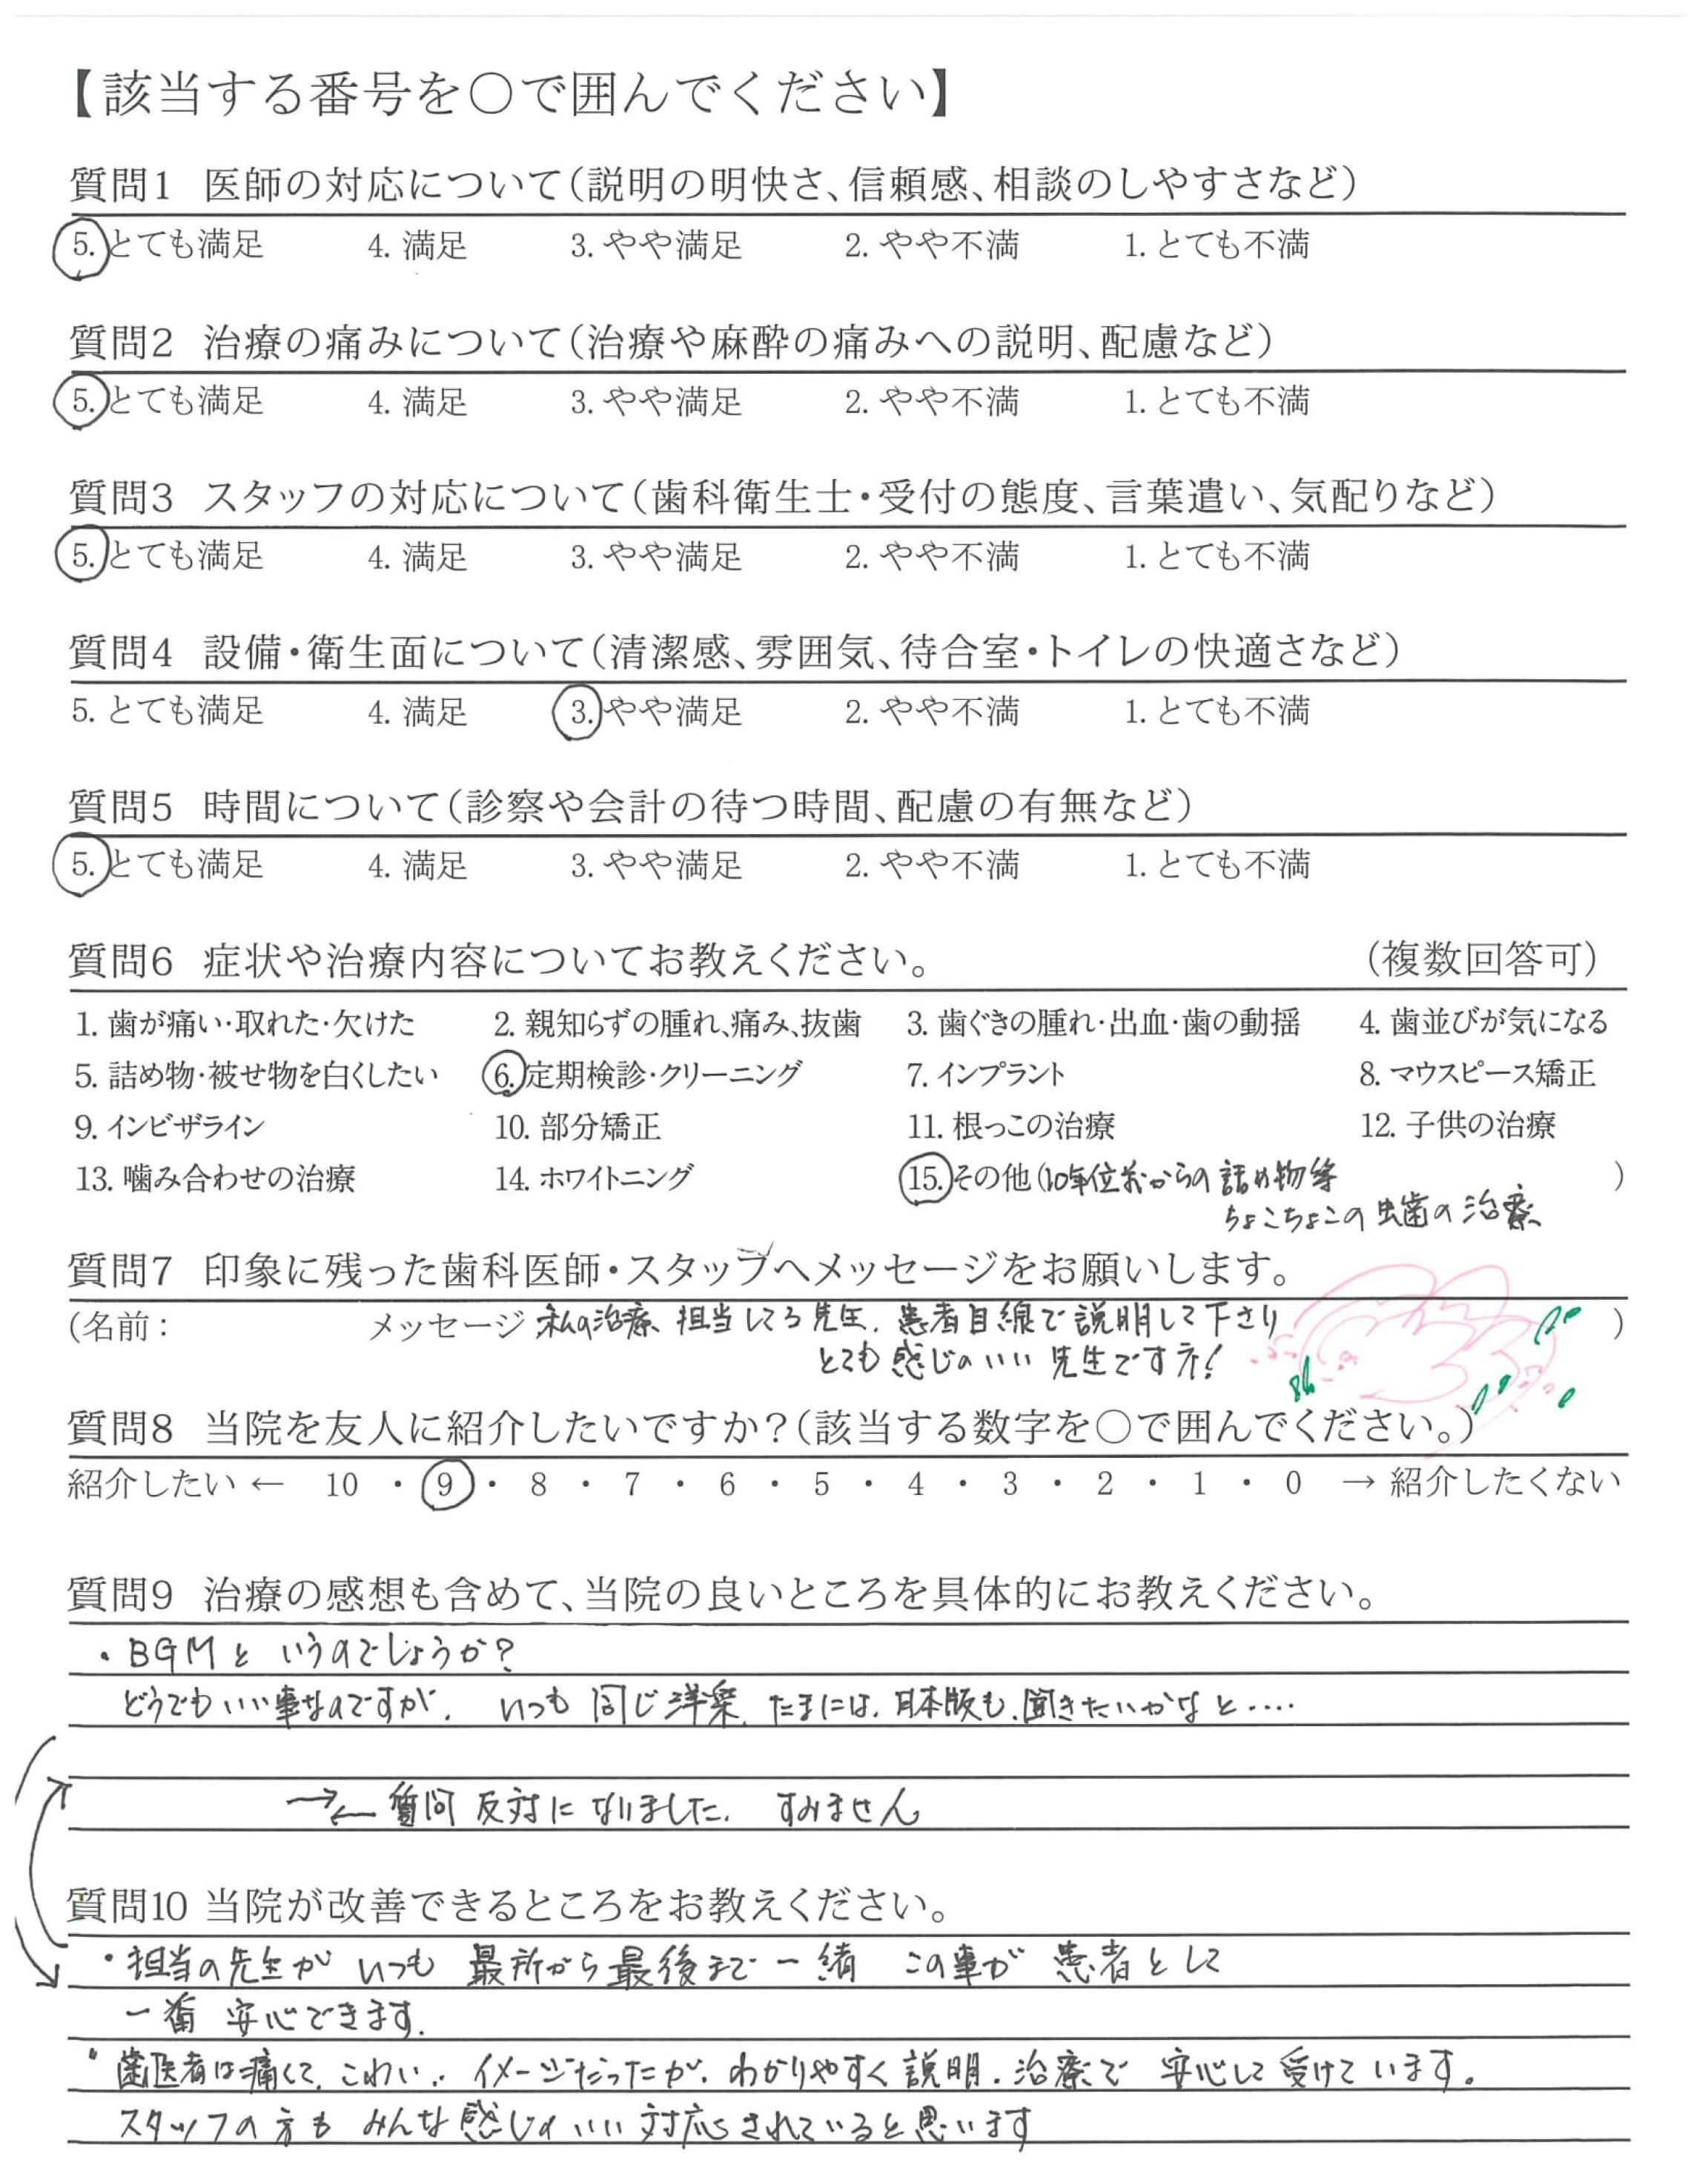 【該当する番号を○で囲んでください】
質問1 医師の対応について（説明の明快さ、信頼感、相談のしやすさなど）
5. とても満足 4. 満足 3. やや満足 2. やや不満 1. とても不満
質問2 治療の痛みについて（治療や麻酔の痛みへの説明、配慮など）
5. とても満足 4. 満足 3. やや満足 2. やや不満 1. とても不満
質問3 スタッフの対応について（歯科衛生士・受付の態度、言葉遣い、気配りなど）
5. とても満足 4. 満足 3. やや満足 2. やや不満 1. とても不満
質問4 設備・衛生面について（清潔感、雰囲気、待合室・トイレの快適さなど）
5. とても満足 4. 満足 3. やや満足 2. やや不満 1. とても不満
質問5 時間について（診察や会計の待つ時間、配慮の有無など）
5. とても満足 4. 満足 3. やや満足 2. やや不満 1. とても不満
質問6 症状や治療内容についてお教えください。 （複数回答可）
1. 歯が痛い・取れた・欠けた 2. 親知らずの腫れ、痛み、抜歯 3. 歯ぐきの腫れ・出血・歯の動揺 4. 歯並びが気になる
5. 詰め物・被せ物を白くしたい 6. 定期検診・クリーニング 7. インプラント 8. マウスピース矯正
9. インビザライン 10. 部分矯正 11. 根っこの治療 12. 子供の治療
13. 噛み合わせの治療 14. ホワイトニング 15. その他（10年位前からの詰め物等 ）
ちょこちょこの虫歯の治療
質問7 印象に残った歯科医師・スタッフへメッセージをお願いします。
（名前： メッセージ 私の治療 担当してる先生、患者目線で説明して下さり ）
とても感じのいい先生です
質問8 当院を友人に紹介したいですか？（該当する数字を○で囲んでください。）
紹介したい ← 10 ・ 9 ・ 8 ・ 7 ・ 6 ・ 5 ・ 4 ・ 3 ・ 2 ・ 1 ・ 0 → 紹介したくない
質問9 治療の感想も含めて、当院の良いところを具体的にお教えください。
・BGMというのでしょうか？
どうでもいい事なのですが、いつも同じ洋楽、たまには、日本版も、聞きたいかなと‥‥
→← 質問反対になりました。すみません
質問10 当院が改善できるところをお教えください。
・担当の先生がいつも最所から最後まで一緒 この事が患者として
一番安心できます。
・歯医者は痛くて、こわい、イメージだったが、わかりやすく説明、治療で安心して受けています。
スタッフの方もみんな感じのいい対応されていると思います